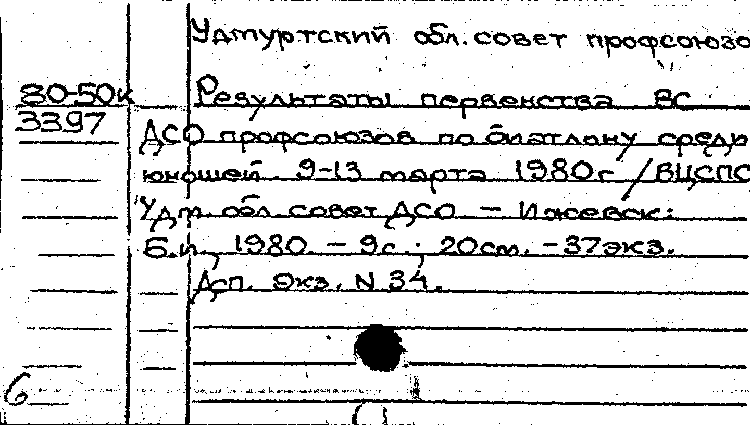 Удмуртский обл. совет профсоюзо
80-50к Результаты первенства ВС
3397 ДСО профсоюзов по биатлону среди
юношей. 9-13 марта 1980г /ВЦСПС
Удм. обл. совет ДСО - Ижевск:
Б.и., 1980. - 9с.; 20см. - 37экз.
Дсп. Экз. N 34.
6